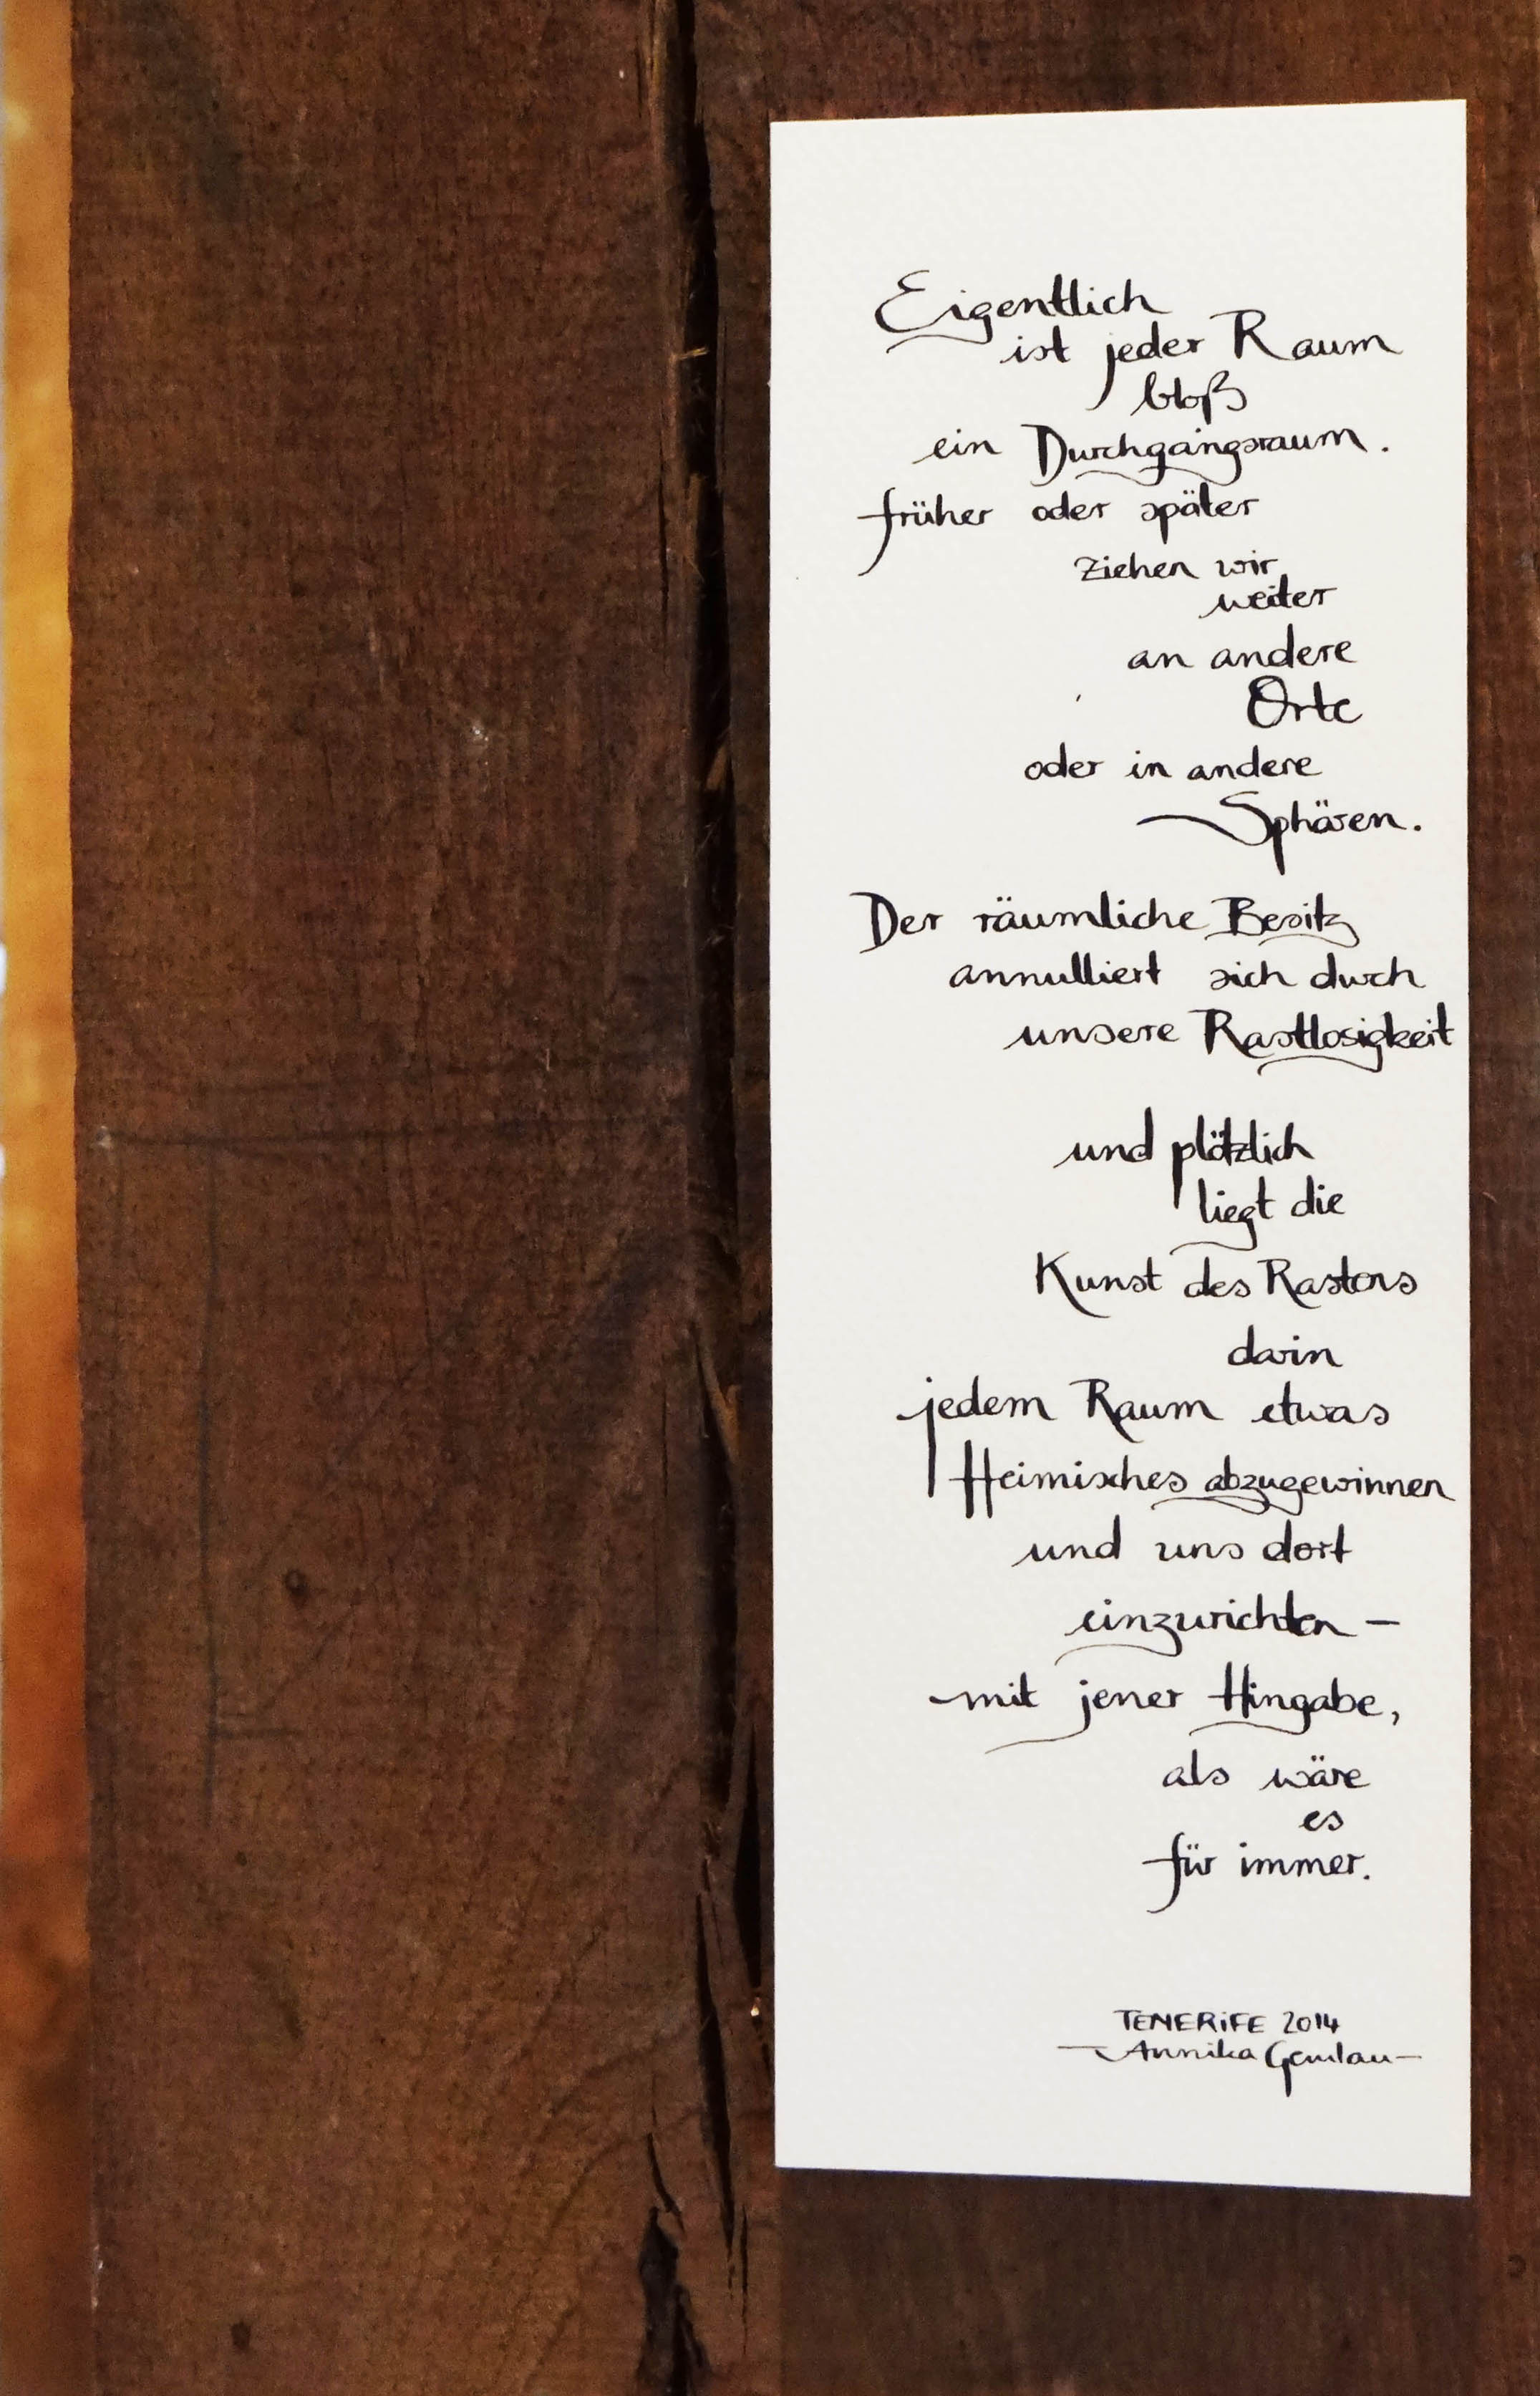 Eigentlich
ist jeder Raum
bloß
ein Durchgangsraum.
früher oder später
ziehen wir
weiter
an andere
Orte
oder in andere
Sphären.
Der räumliche Besitz
annulliert sich durch
unsere Rastlosigkeit
und plötzlich
liegt die
Kunst des Rastens
darin
jedem Raum etwas
Heimisches abzugewinnen
und uns dort
einzurichten –
mit jener Hingabe,
als wäre
es
für immer.
TENERiFE 2014
Annika Gemlau